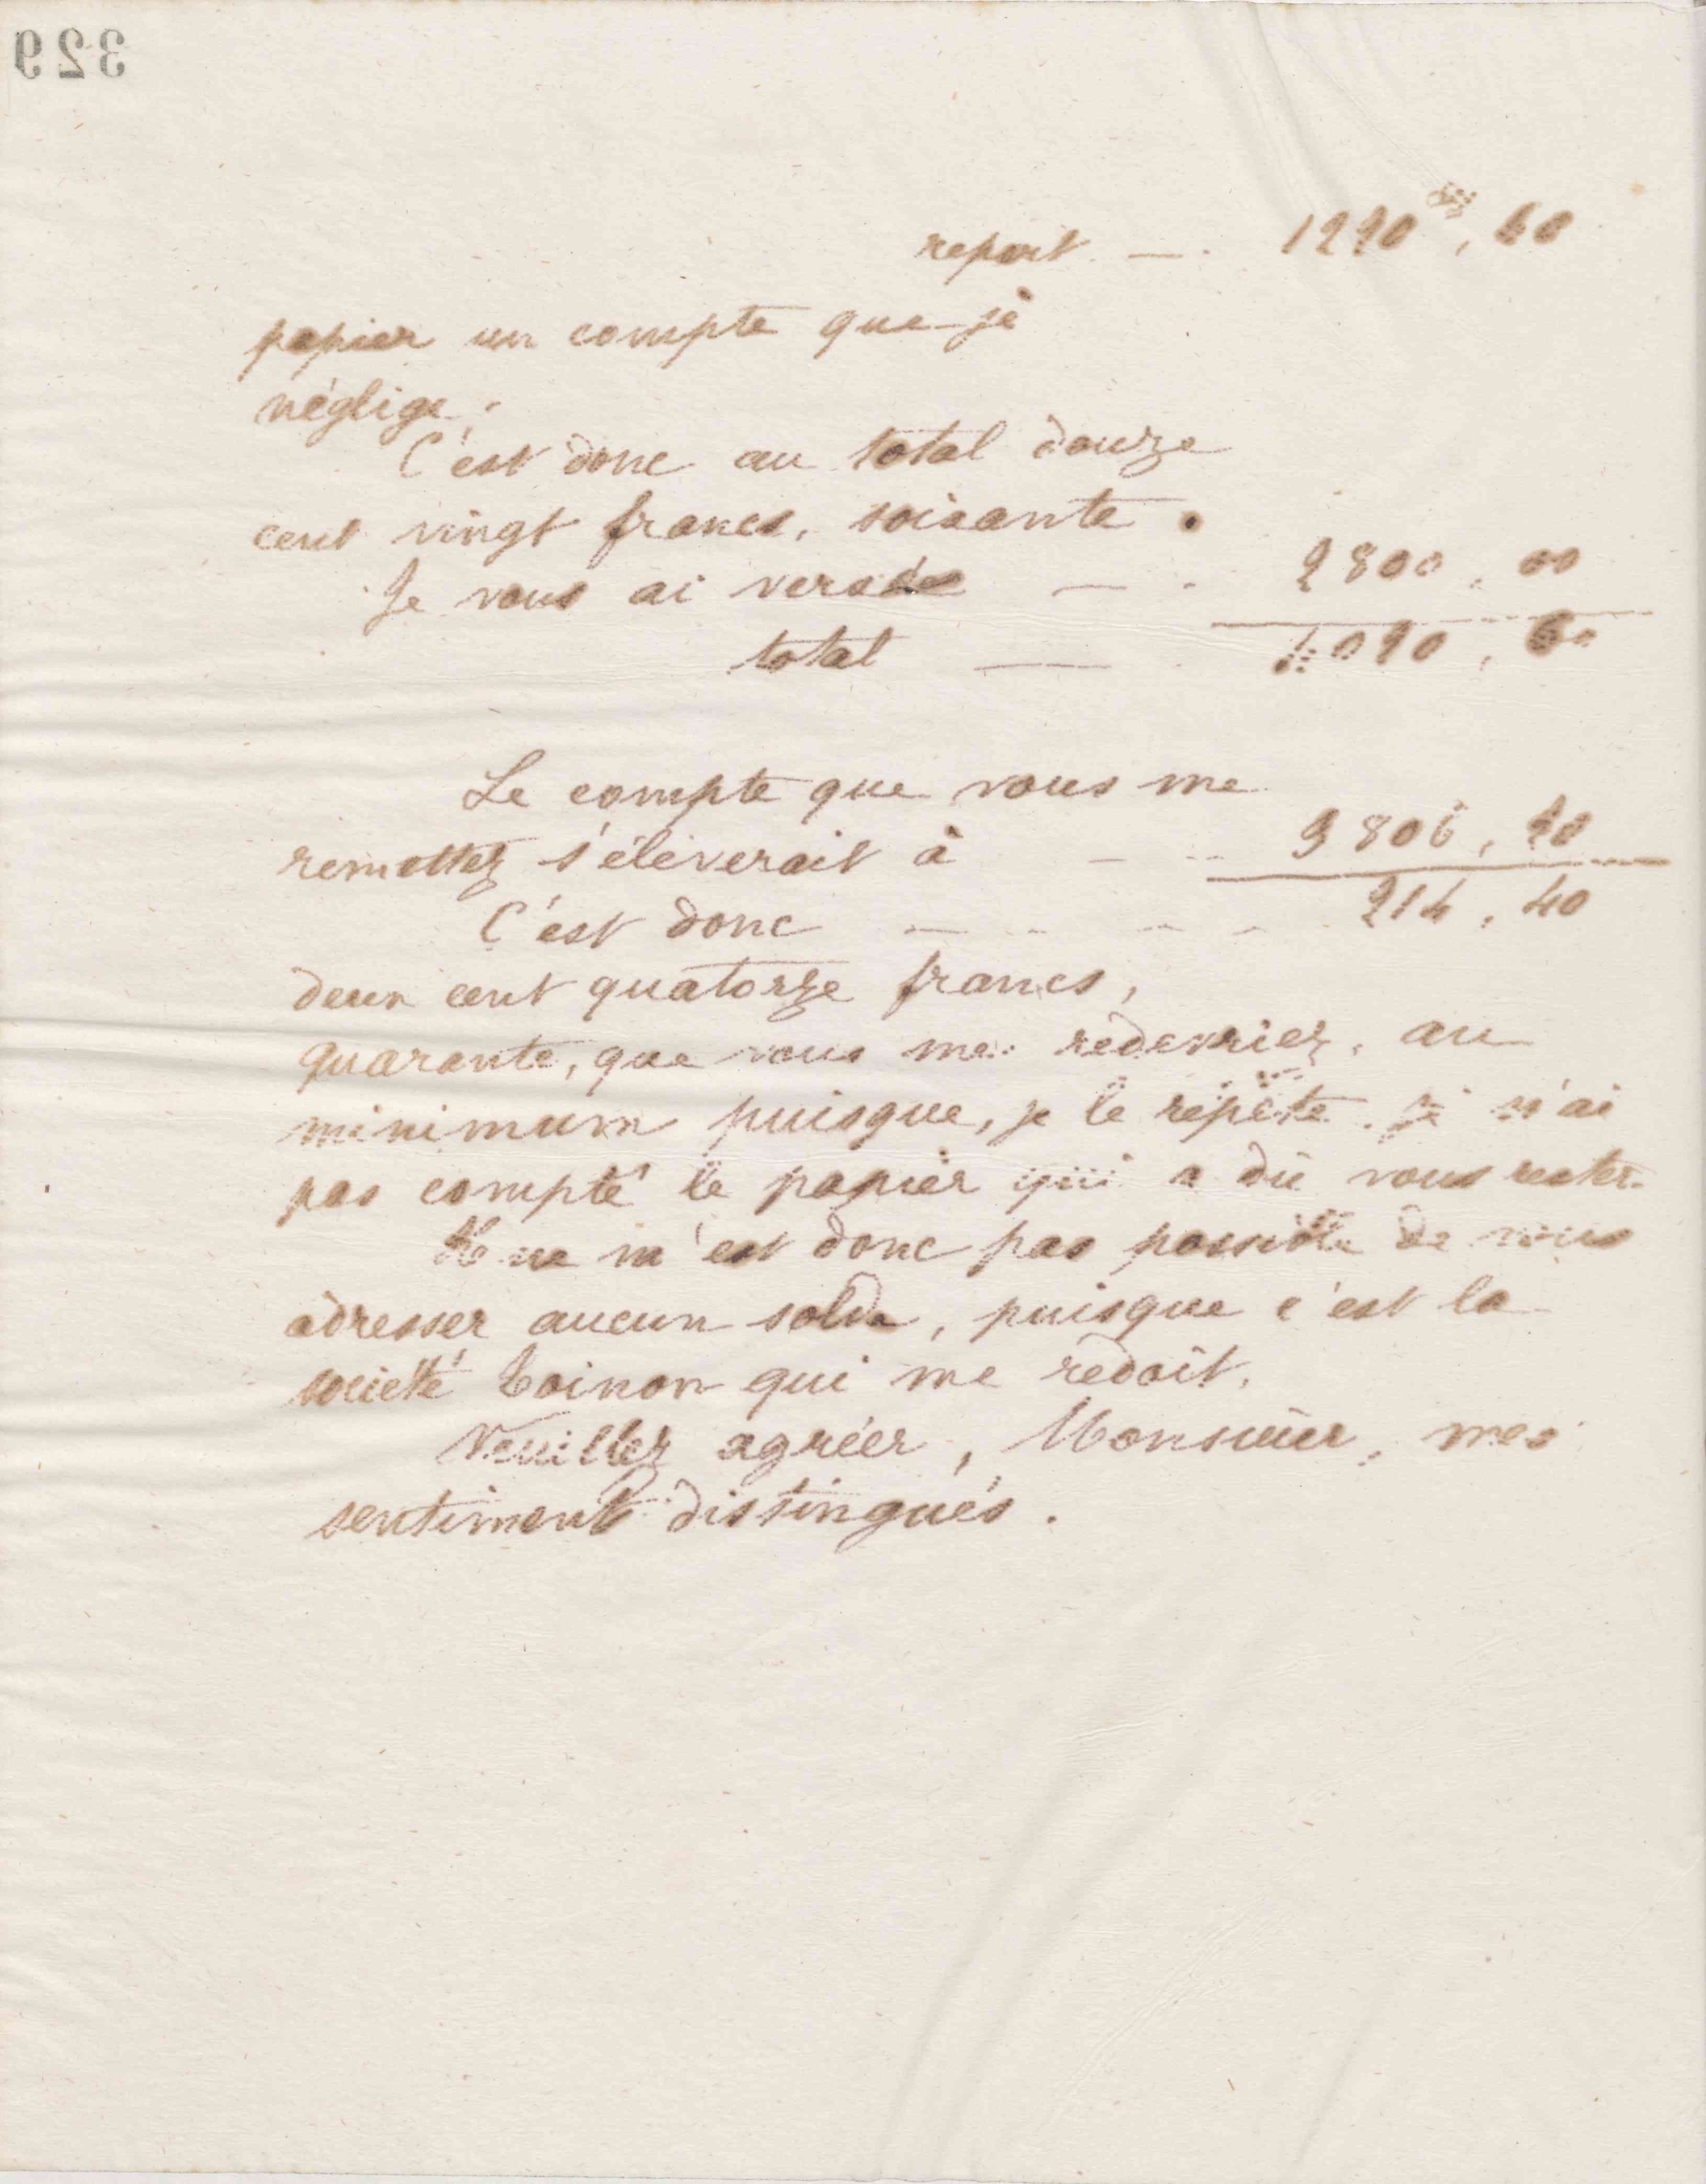 329
report — 1220 fr, 60
papier un compte que je
néglige.
C'est donc au total douze
cent vingt francs, soixante.
Je vous ai versé — 2800, 00
total — 4020, 60
Le compte que vous me
remettez s'élèverait à — 3806, 20
C'est donc — 214, 40
deux cent quatorze francs,
quarante, que vous me redevriez, au
minimum puisque, je le répète, je n'ai
pas compté le papier qui a dû vous rester.
Il ne m'est donc pas possible de vous
adresser aucun solde, puisque c'est la
société Toinon qui me redoit.
Veuillez agréer, Monsieur, mes
sentiments distingués.